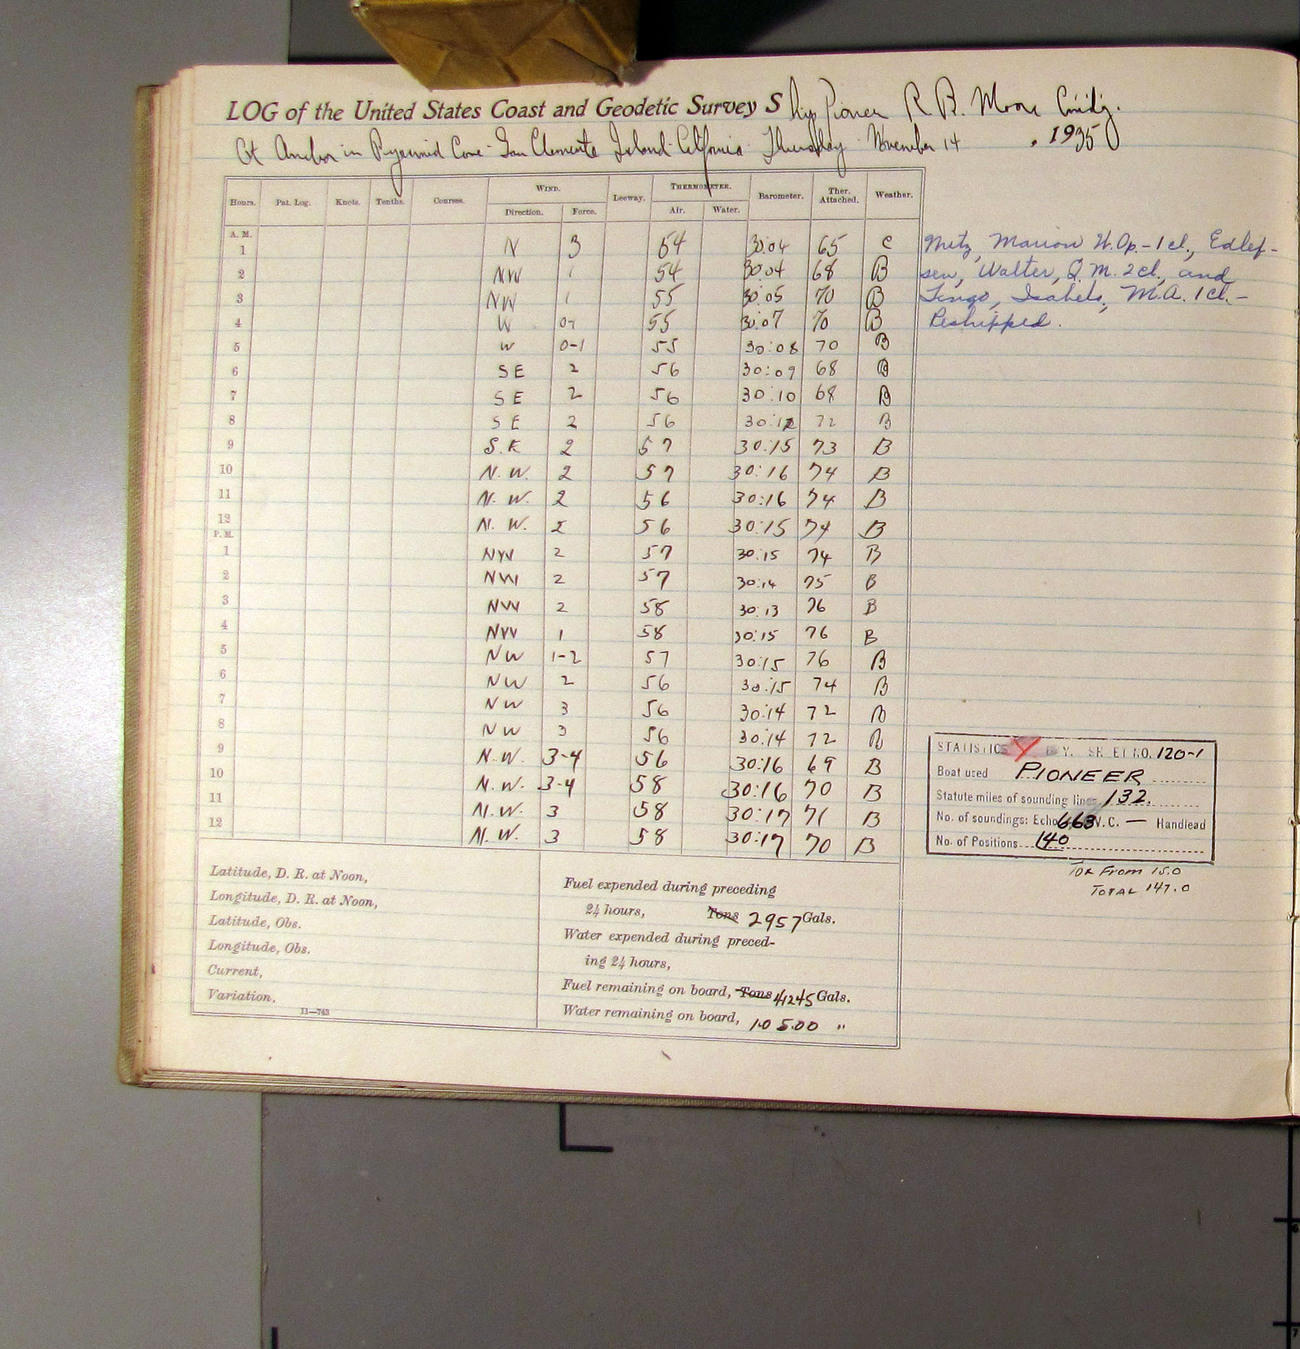 LOG of the United States Coast and Geodetic Survey Ship Pioneer R. B. Moore Cmdg.
At Anchor in Pyramid Cove - San Clemente Island - California Thursday November 14, 1935
Hours. Pat. Log. Knots. Tenths. Courses. WIND. Direction. Force. Leeway. THERMOMETER. Air. Water. Barometer. Ther. Attached. Weather.
A. M.
1 N 3 54 30:04 65 C
2 NW 1 54 30:04 68 B
3 NW 1 55 30:05 70 B
4 W 0-1 55 30:07 70 B
5 W 0-1 55 30:08 70 B
6 SE 2 56 30:09 68 B
7 SE 2 56 30:10 68 B
8 SE 2 56 30:12 72 B
9 S.E 2 57 30:15 73 B
10 N.W. 2 57 30:16 74 B
11 N.W. 2 56 30:16 74 B
12 N.W. 2 56 30:15 74 B
P. M.
1 NW 2 57 30:15 74 B
2 NW 2 57 30:14 75 B
3 NW 2 58 30:13 76 B
4 NW 1 58 30:15 76 B
5 NW 1-2 57 30:15 76 B
6 NW 2 56 30:15 74 B
7 NW 3 56 30:14 72 B
8 NW 3 56 30:14 72 B
9 N.W. 3-4 56 30:16 69 B
10 N.W. 3-4 58 30:16 70 B
11 N.W. 3 58 30:17 71 B
12 N.W. 3 58 30:17 70 B
Metz, Marion W. Op. - 1 cl., Edlef-
sen, Walter, Q.M. 2cl., and
Isabelo, M.A. 1 cl. -
Reshipped.
STATISTICS SHEET NO. 120-1
Boat used PIONEER
Statute miles of sounding lines 132.
No. of soundings: Echo 663 V.C. — Handlead
No. of Positions 140
From 15.0
TOTAL 147.0
Latitude, D. R. at Noon,
Longitude, D. R. at Noon,
Latitude, Obs.
Longitude, Obs.
Current,
Variation,
11—763
Fuel expended during preceding
24 hours, Tons 2957 Gals.
Water expended during preced-
ing 24 hours,
Fuel remaining on board, Tons 41245 Gals.
Water remaining on board, 10500 "